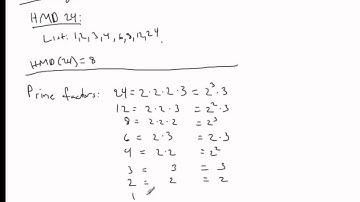 HMD 24:
List: 1, 2, 3, 4, 6, 8, 12, 24.
HMD(24) = 8
Prime factors: 24 = 2·2·2·3 = 2³·3
12 = 2·2·3 = 2²·3
8 = 2·2·2 = 2³
6 = 2·3 = 2·3
4 = 2·2 = 2²
3 = 3 = 3
2 = 2 = 2
1